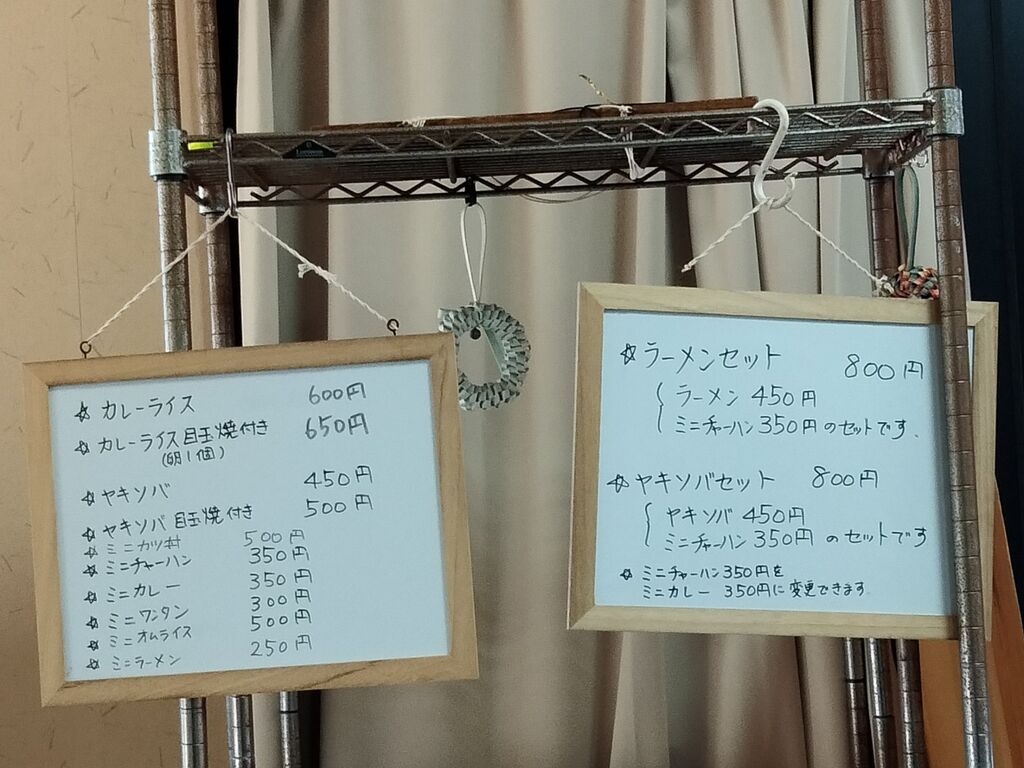 ☆ カレーライス 600円
☆ カレーライス目玉焼付き 650円
(卵1個)
☆ ヤキソバ 450円
☆ ヤキソバ 目玉焼付き 500円
☆ ミニカツ丼 500円
☆ ミニチャーハン 350円
☆ ミニカレー 350円
☆ ミニワンタン 300円
☆ ミニオムライス 500円
☆ ミニラーメン 250円
☆ ラーメンセット 800円
ラーメン 450円
ミニチャーハン 350円のセットです.
☆ ヤキソバセット 800円
ヤキソバ 450円
ミニチャーハン 350円 のセットです
☆ ミニチャーハン350円を
ミニカレー 350円に変更できます